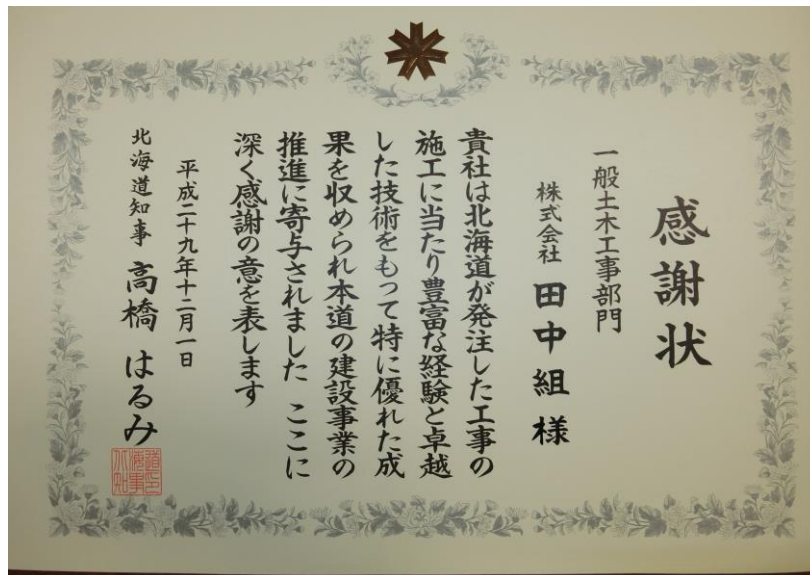 感謝状
一般土木工事部門
株式会社 田中組 様
貴社は北海道が発注した工事の
施工に当たり豊富な経験と卓越
した技術をもって特に優れた成
果を収められ本道の建設事業の
推進に寄与されました ここに
深く感謝の意を表します
平成二十九年十二月一日
北海道知事 高橋 はるみ